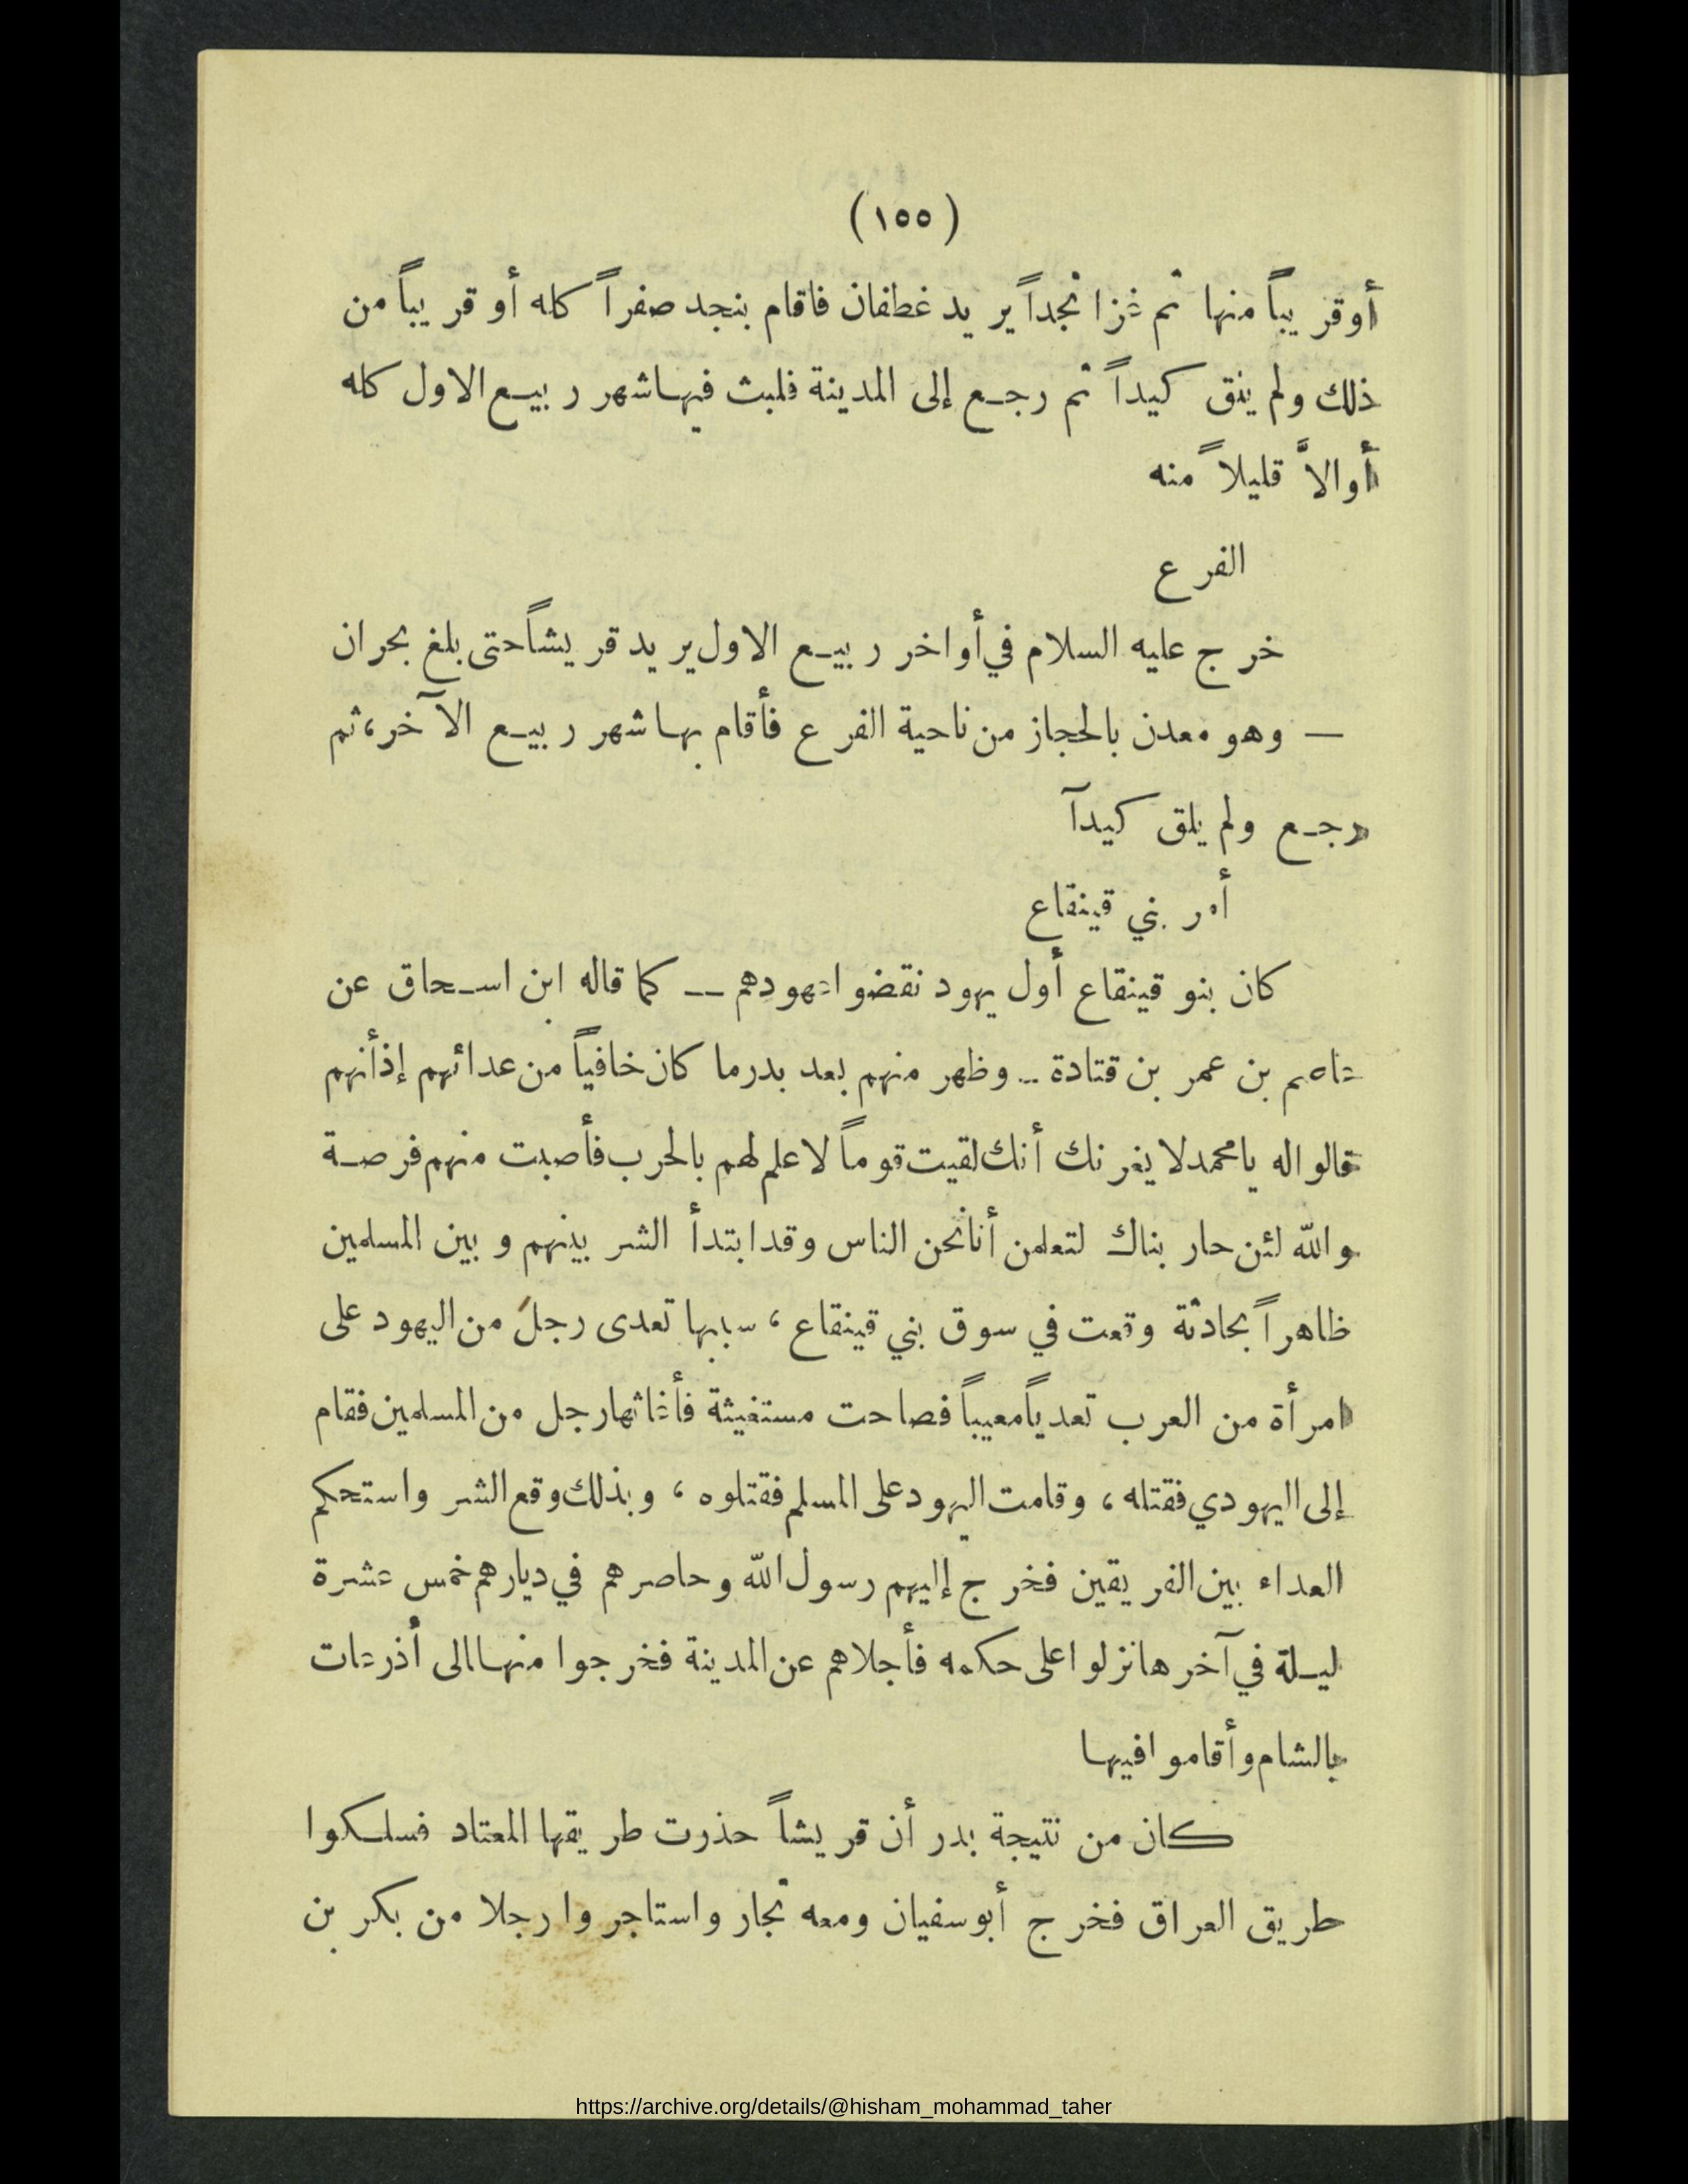 (١٥٥)
أو قريباً منها ثم غزا نجداً يريد غطفان فاقام بنجد صفراً كله أو قريباً من
ذلك ولم يلق كيداً ثم رجع إلى المدينة فلبث فيها شهر ربيع الاول كله
أو الاَّ قليلاً منه
الفرع
خرج عليه السلام في أواخر ربيع الاول يريد قريشاً حتى بلغ بحران
— وهو معدن بالحجاز من ناحية الفرع فأقام بها شهر ربيع الآخر، ثم
رجع ولم يلق كيدآ
أمر بني قينقاع
كان بنو قينقاع أول يهود نقضوا عهودهم — كما قاله ابن اسحاق عن
عاصم بن عمر بن قتادة — وظهر منهم بعد بدر ما كان خافياً من عدائهم إذ أنهم
قالوا له يا محمد لا يغرنك أنك لقيت قوماً لا علم لهم بالحرب فأصبت منهم فرصة
والله لئن حاربناك لتعلمن أنا نحن الناس وقد ابتدأ الشر بينهم وبين المسلمين
ظاهراً بحادثة وقعت في سوق بني قينقاع، سببها تعدى رجل من اليهود على
امرأة من العرب تعدياً معيباً فصاحت مستغيثة فأغاثها رجل من المسلمين فقام
إلى اليهودي فقتله، وقامت اليهود على المسلم فقتلوه، وبذلك وقع الشر واستحكم
العداء بين الفريقين فخرج إليهم رسول الله وحاصرهم في ديارهم خمس عشرة
ليلة في آخرها نزلوا على حكمه فأجلاهم عن المدينة فخرجوا منها الى أذرعات
بالشام وأقاموا فيها
كان من نتيجة بدر أن قريشاً حذرت طريقها المعتاد فسلكوا
طريق العراق فخرج أبو سفيان ومعه تجار واستاجروا رجلا من بكر بن
https://archive.org/details/@hisham_mohammad_taher